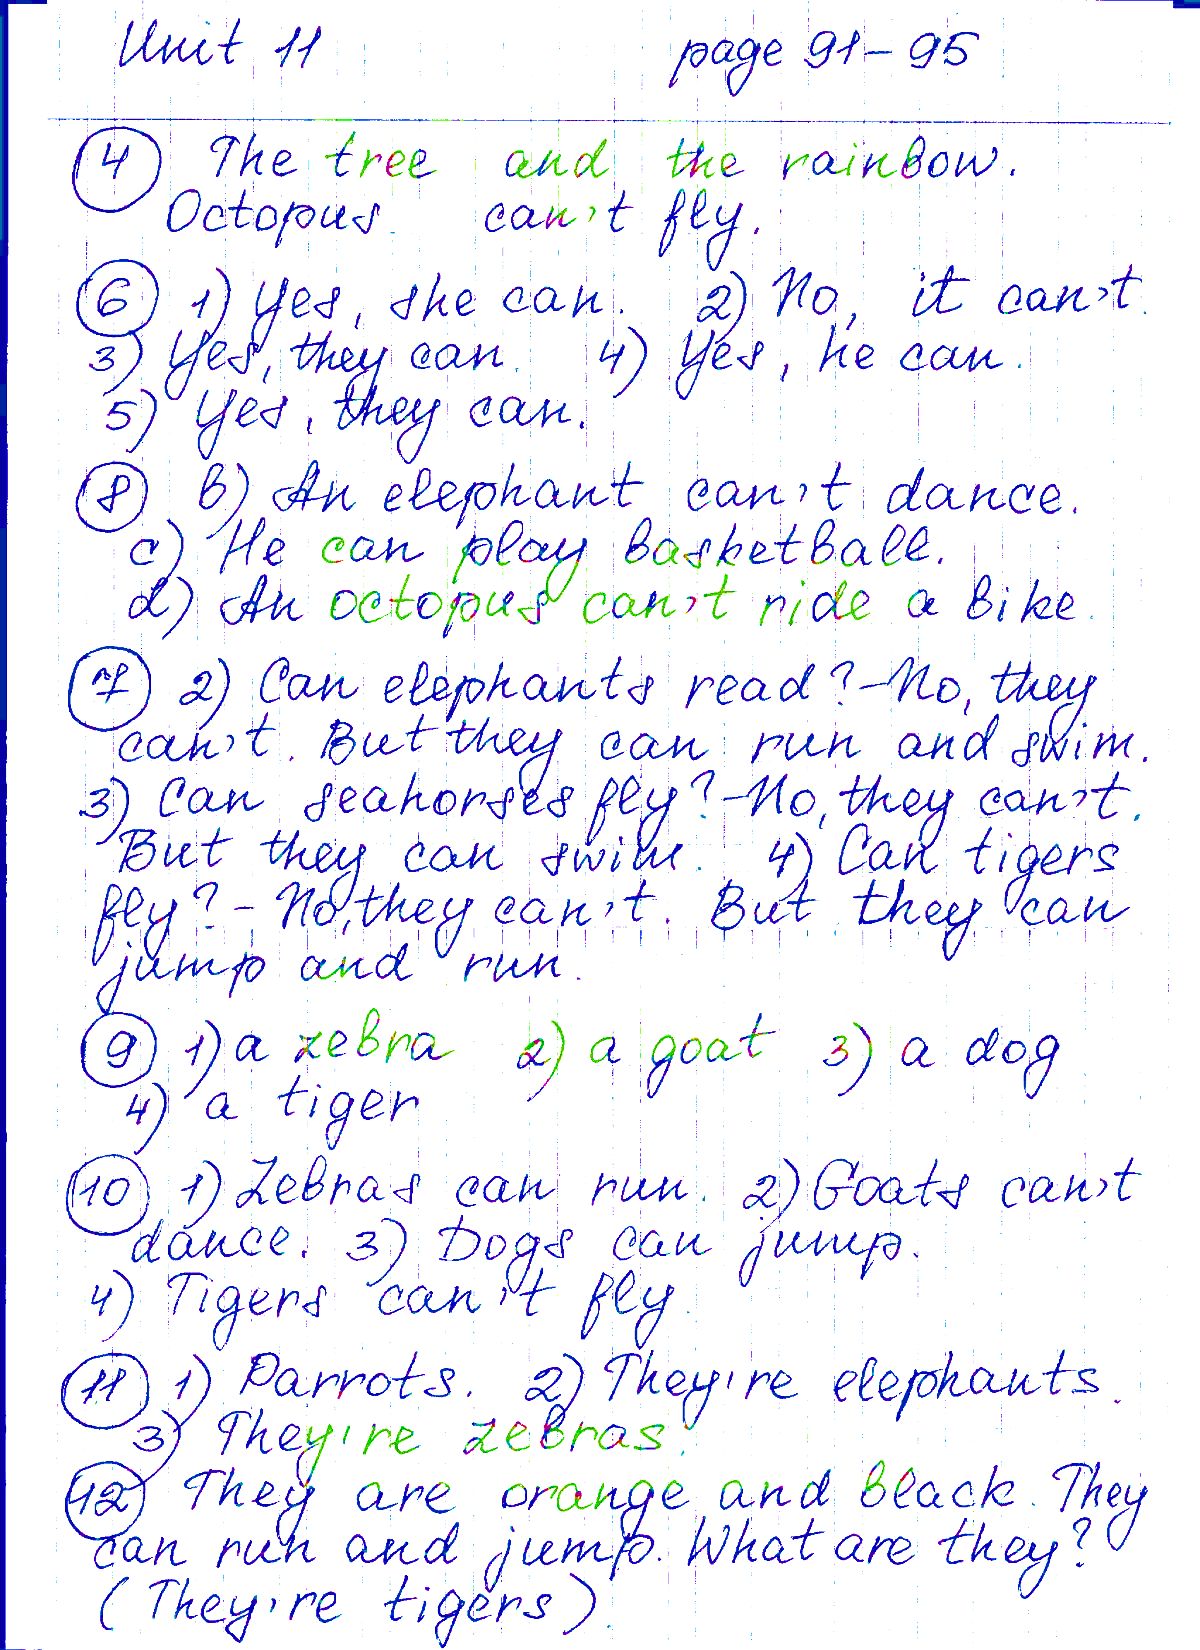 Unit 11 page 91-95
4 The tree and the rainbow.
Octopus can't fly.
6 1) Yes, she can. 2) No, it can't.
3) Yes, they can. 4) Yes, he can.
5) Yes, they can.
8 b) An elephant can't dance.
c) He can play basketball.
d) An octopus can't ride a bike.
7 2) Can elephants read? - No, they
can't. But they can run and swim.
3) Can seahorses fly? - No, they can't.
But they can swim. 4) Can tigers
fly? - No, they can't. But they can
jump and run.
9 1) a zebra 2) a goat 3) a dog
4) a tiger
10 1) Zebras can run. 2) Goats can't
dance. 3) Dogs can jump.
4) Tigers can't fly.
11 1) Parrots. 2) They're elephants.
3) They're zebras.
12 They are orange and black. They
can run and jump. What are they?
(They're tigers).